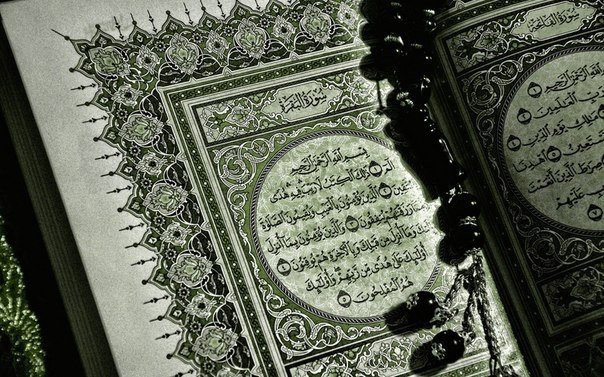 سورة الفاتحة
الله الرحمن الرحيم ١
رب العلمين ٢
ملك يوم الدين ٤
نستعين ٥ اهدنا
صرط الذين أنعمت
عليهم
سورة البقرة
بسم الله الرحمن الرحيم
الم ١ ذلك الكتب لا ريب فيه هدى
للمتقين ٢ الذين يؤمنون بالغيب ويقيمون الصلوة
ومما رزقنهم ينفقون ٣ والذين يؤمنون بما أنزل إليك
وما أنزل من قبلك وبالأخرة هم يوقنون ٤
أولئك على هدى من ربهم وأولئك
هم المفلحون ٥